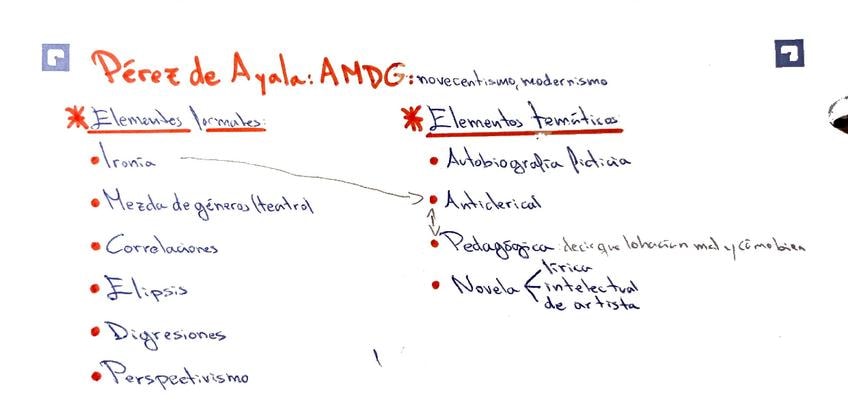 Pérez de Ayala: AMDG: novecentismo, modernismo
* Elementos formales:
• Ironía
• Mezcla de géneros (teatro)
• Correlaciones
• Elipsis
• Digresiones
• Perspectivismo
* Elementos temáticos
• Autobiografía ficticia
• Anticlerical
• Pedagógica: decir que lo hacían mal y cómo bien
• Novela
lírica
intelectual
de artista